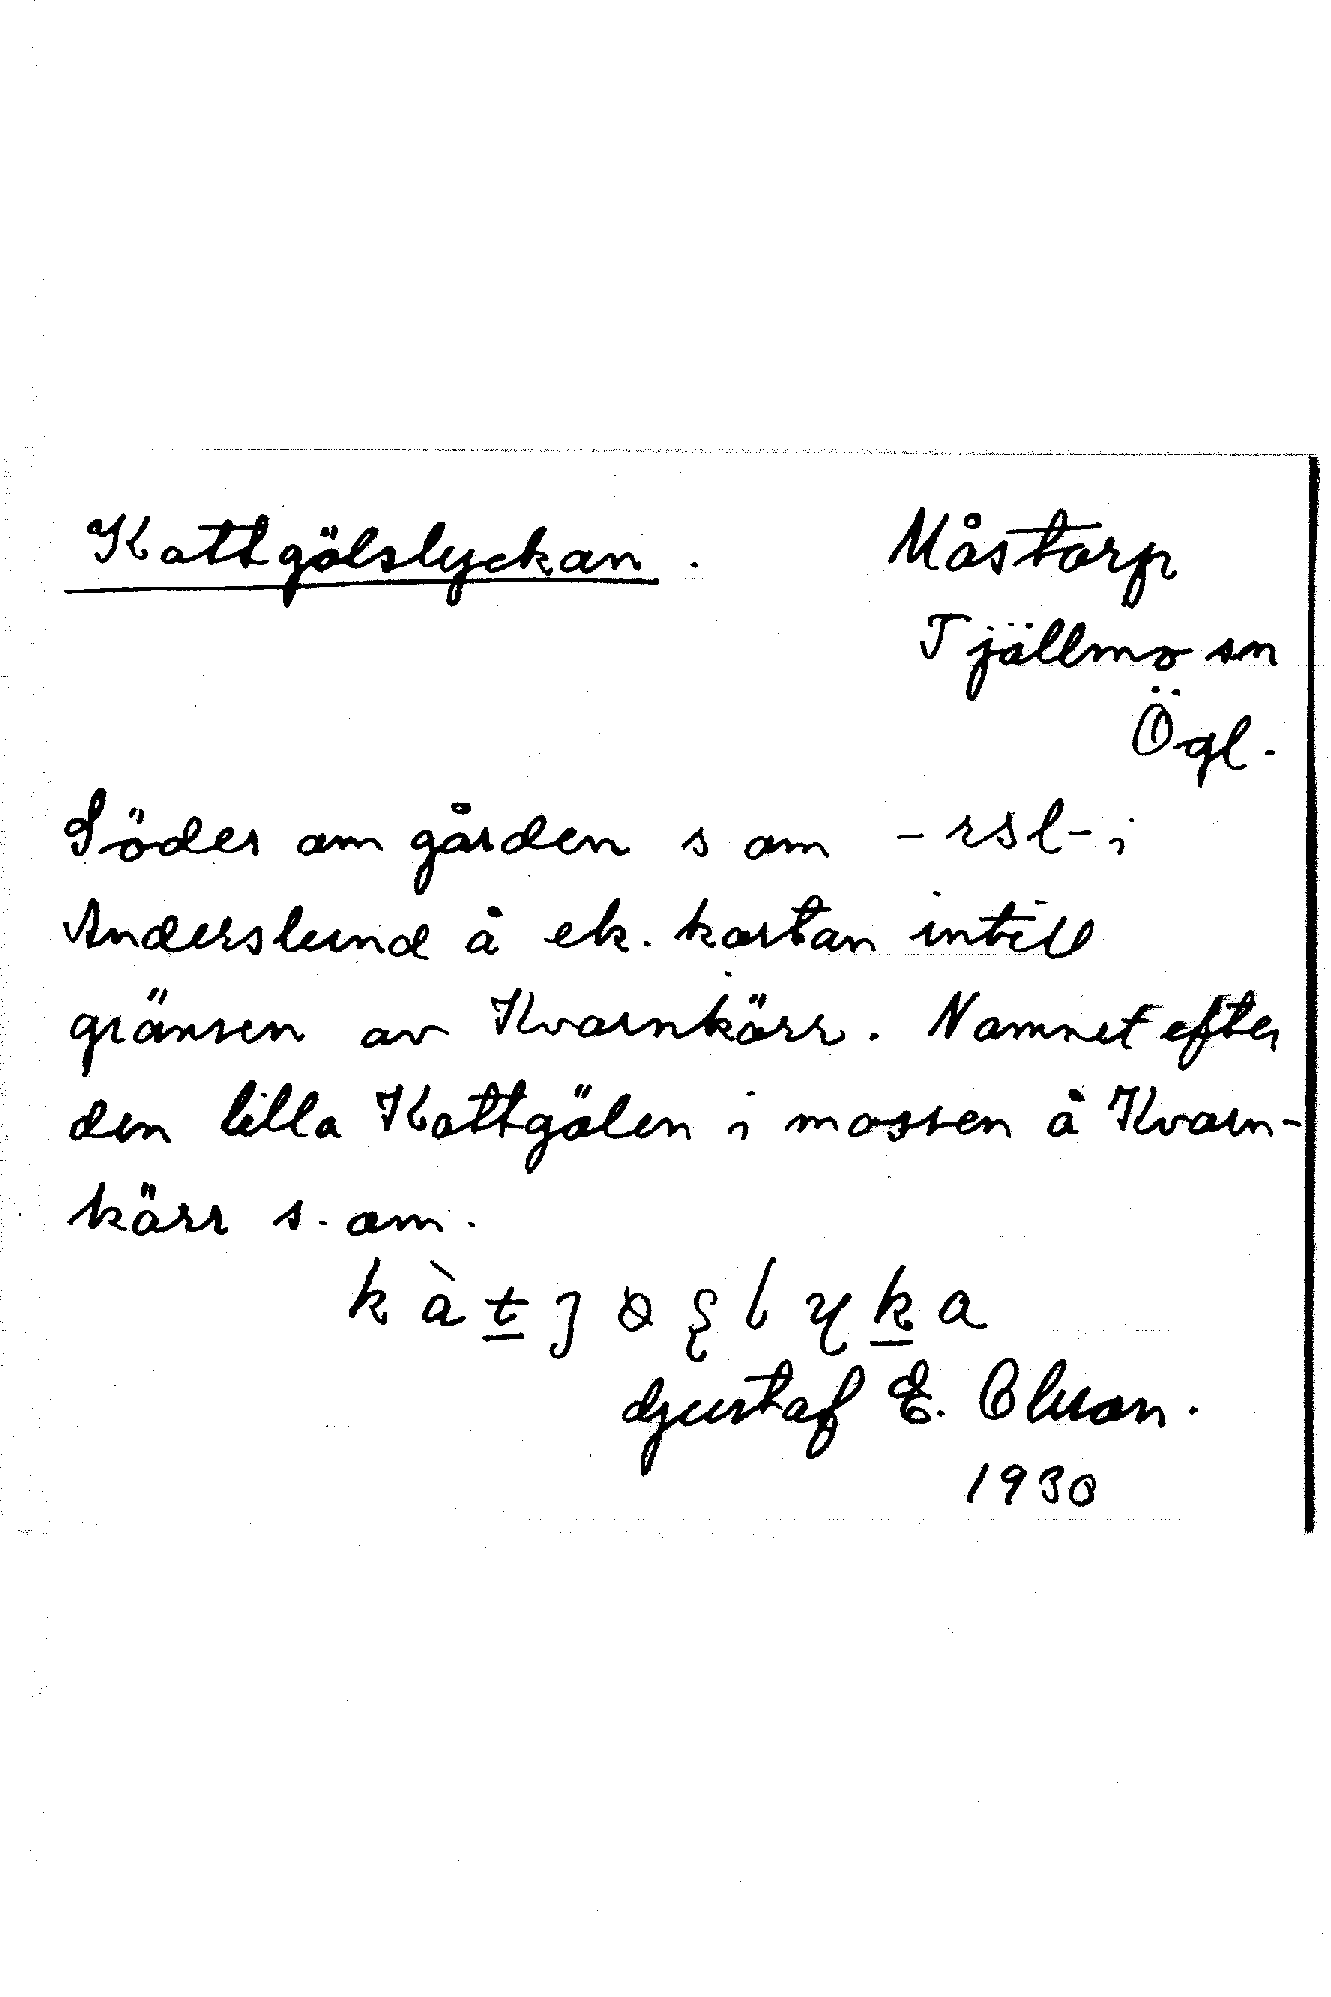 Kattgölslyckan.
Måstorp
Tjällmo sn
Ögl.
Söder om gården s om -rsl- i
Anderslund å ek. kartan intill
gränsen av Kvarnkärr. Namnet efter
den lilla Kattgölen i mossen å Kvarn-
kärr s. om.
kàtjɵslyka
Gustaf E. Olsson.
1930